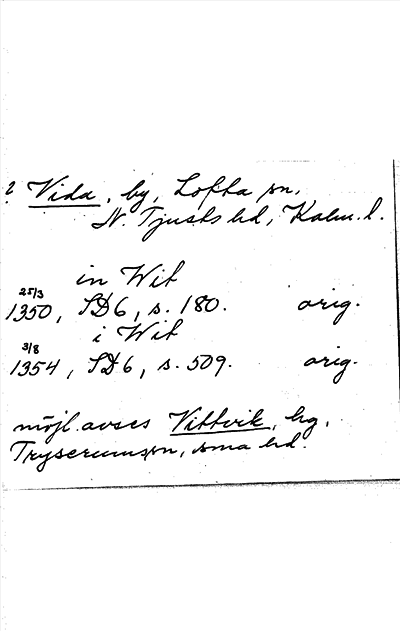 ? Vida, by, Lofta sn,
N. Tjusts hd, Kalm. l.
in Wit
25/3
1350, SD6, s. 180. orig.
i Wit
3/8
1354, SD6, s. 509. orig.
möjl. avses Vittvik, hg,
Tryserums sn, sma hd.